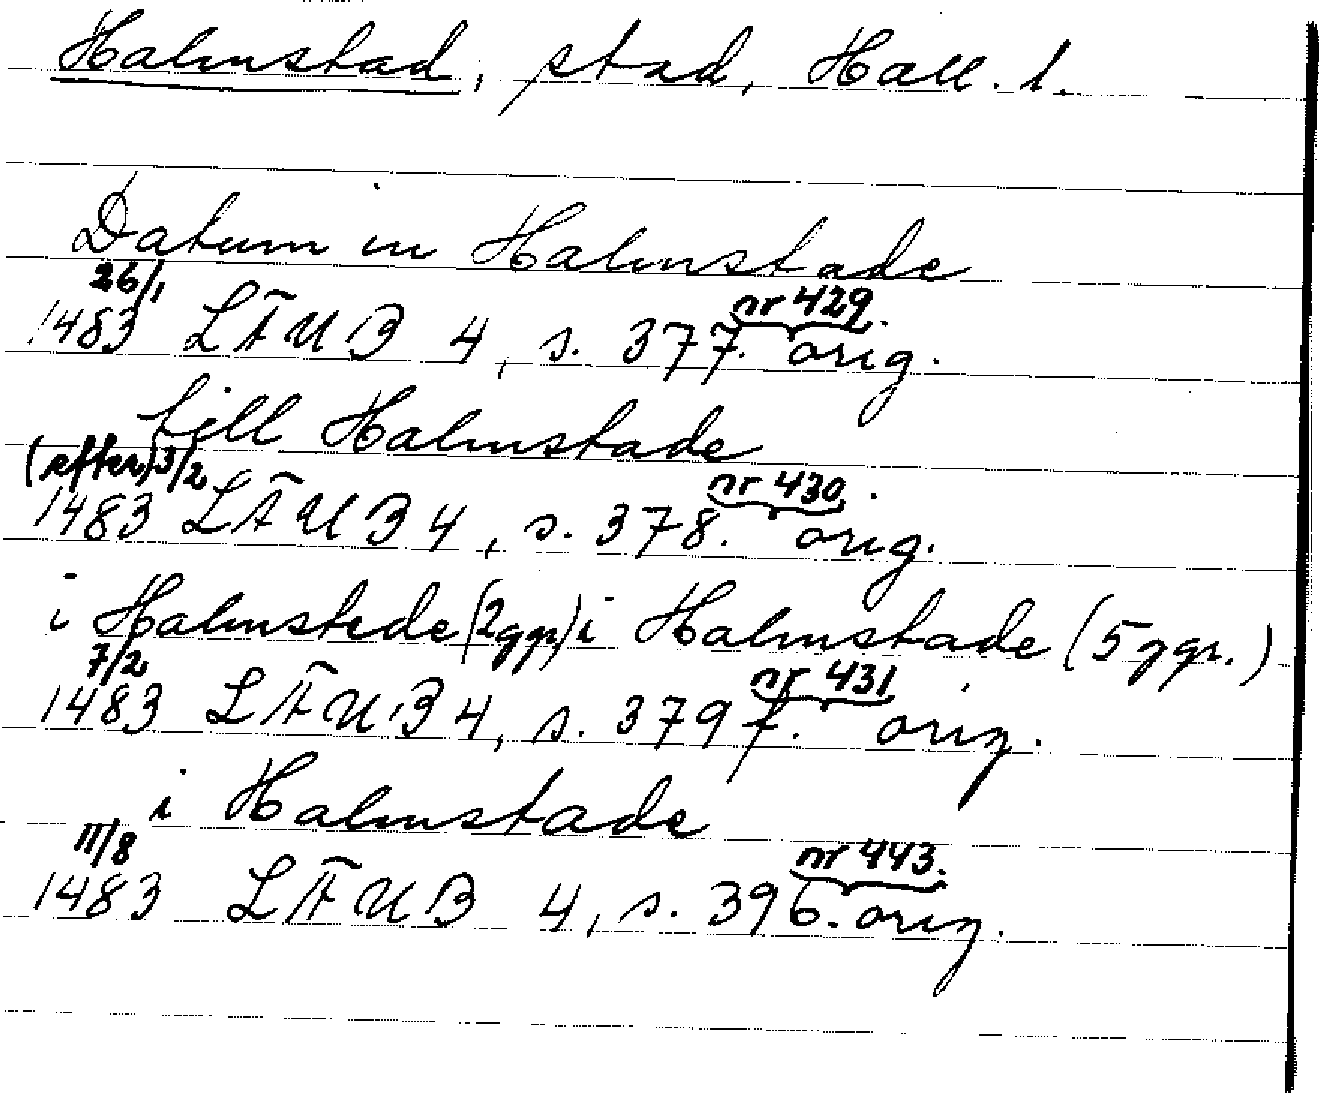 Halmstad, stad, Hall. l.
Datum in Halmstade
26/1 nr 429.
1483 LÄUB 4, s. 377. orig.
till Halmstade
(efter) 3/2 nr 430.
1483 LÄUB 4, s. 378. orig.
i Halmstede (2 ggr) i Halmstade (5 ggr.)
7/2 nr 431
1483 LÄUB 4, s. 379 f. orig.
i Halmstade
11/8 nr 443.
1483 LÄUB 4, s. 396. orig.